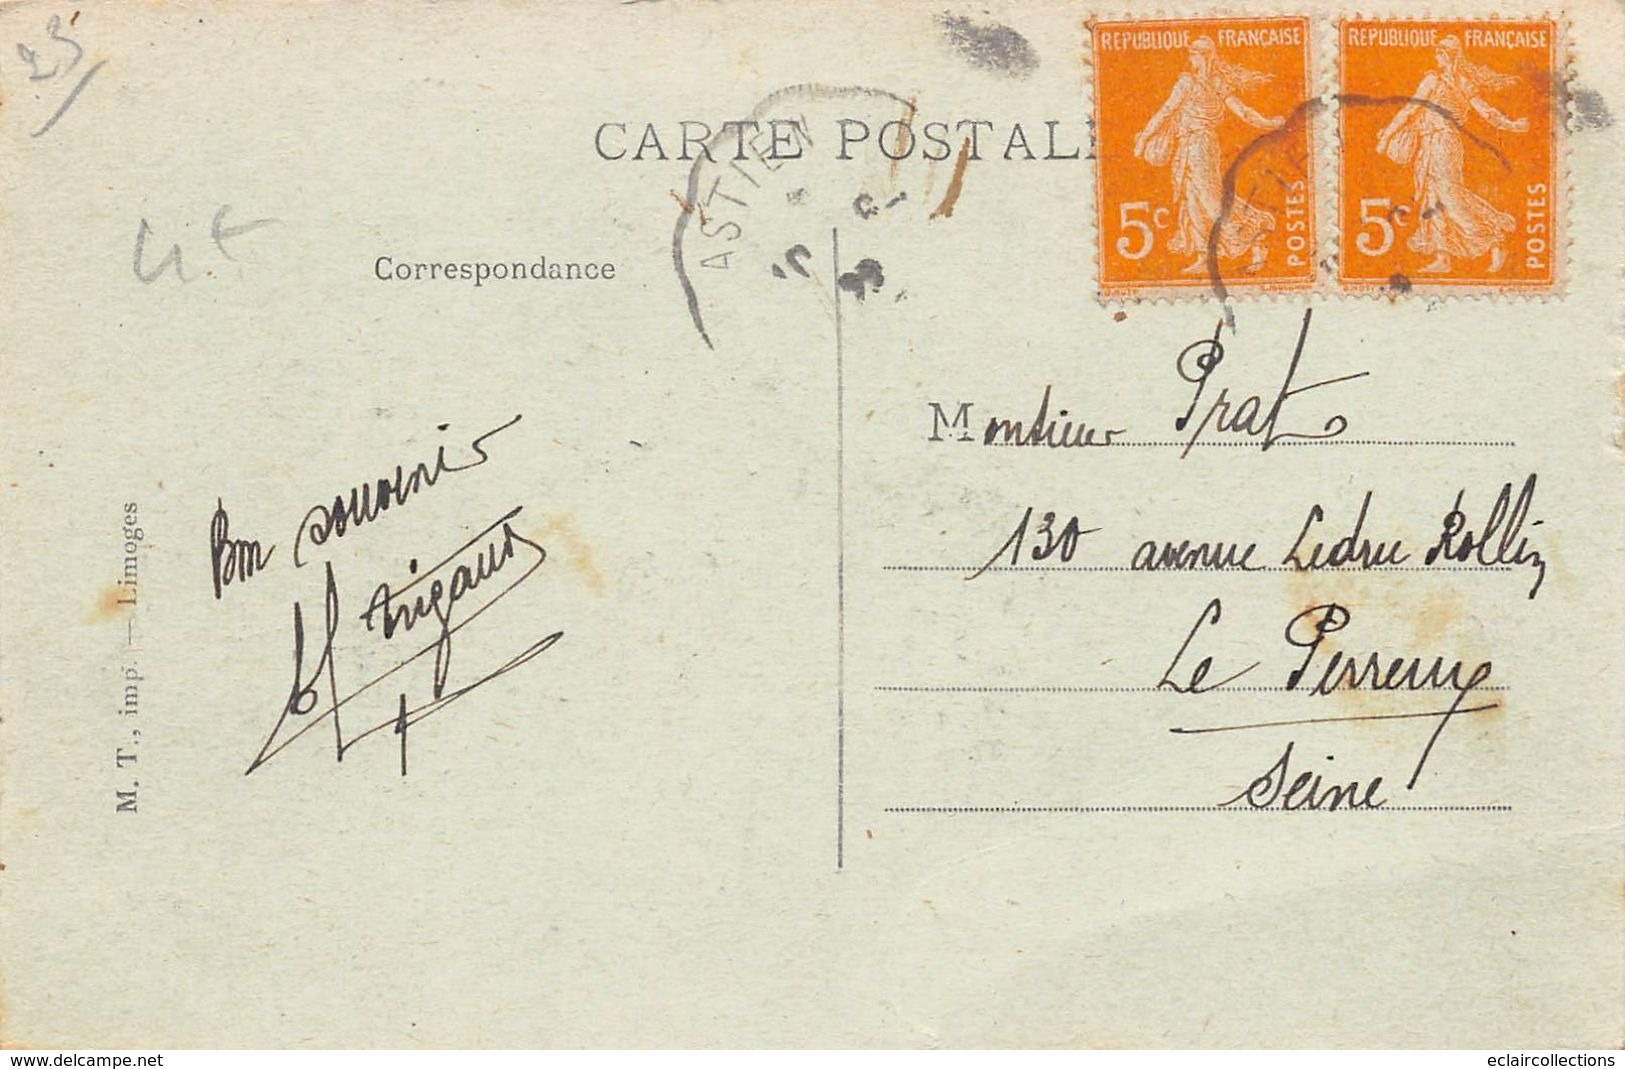 25
RÉPUBLIQUE FRANÇAISE
5c
POSTES
RÉPUBLIQUE FRANÇAISE
5c
POSTES
CARTE POSTALE
ASTIEN
Correspondance
Monsieur Prat
130 avenue Ledru Rollin
Le Perreux
Seine
Bon souvenir
Rigaud
M. T., imp. — Limoges
www.delcampe.net
eclaircollections